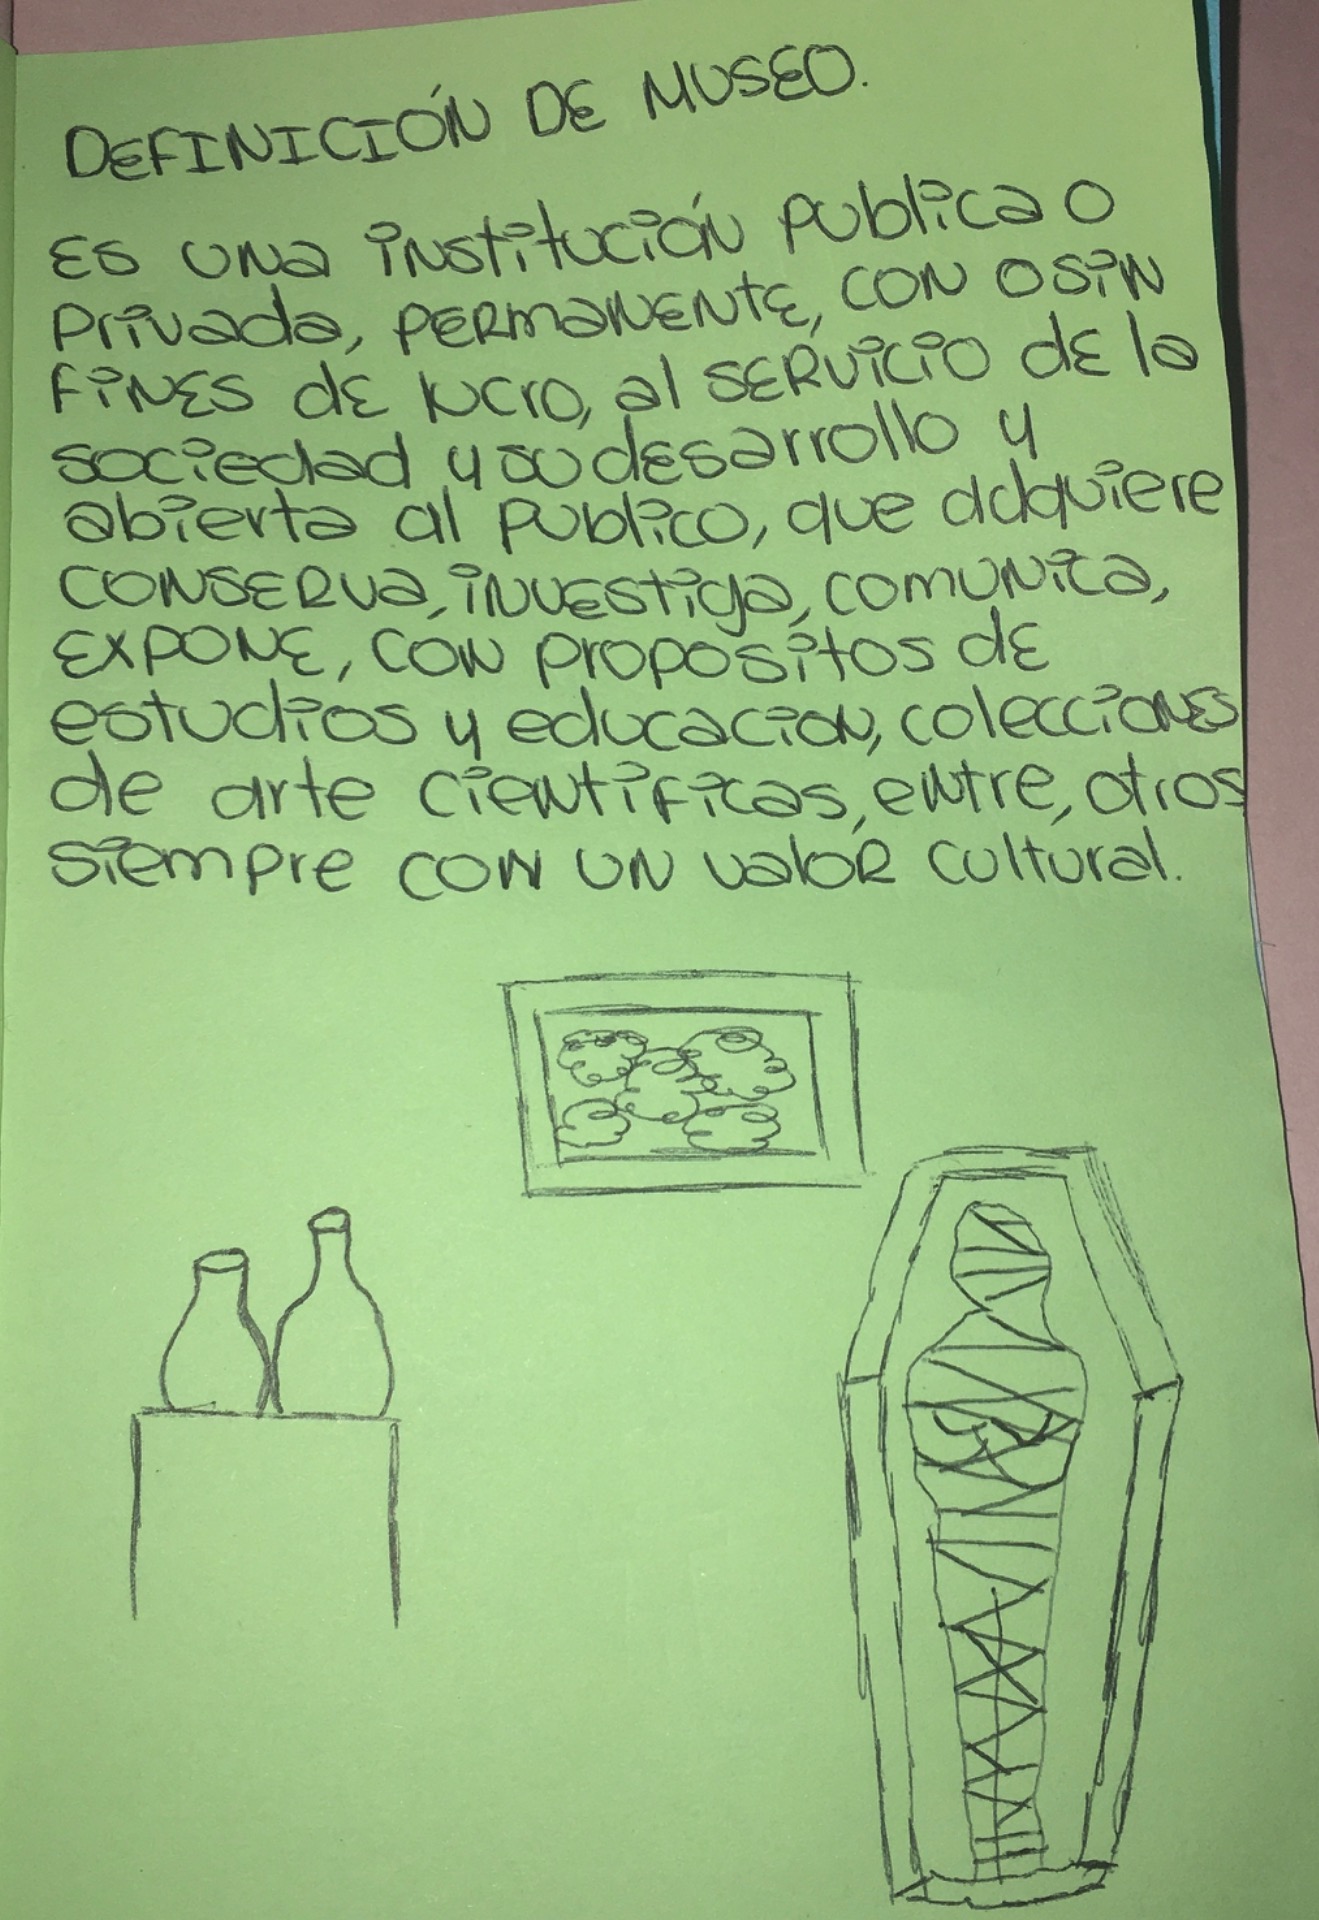 DEFINICIÓN DE MUSEO.
Es una institución publica o
privada, permanente, con o sin
fines de lucro, al servicio de la
sociedad y su desarrollo y
abierta al publico, que adquiere
conserva, investiga, comunica,
expone, con propositos de
estudios y educacion, colecciones
de arte cientificas, entre, otros
siempre con un valor cultural.